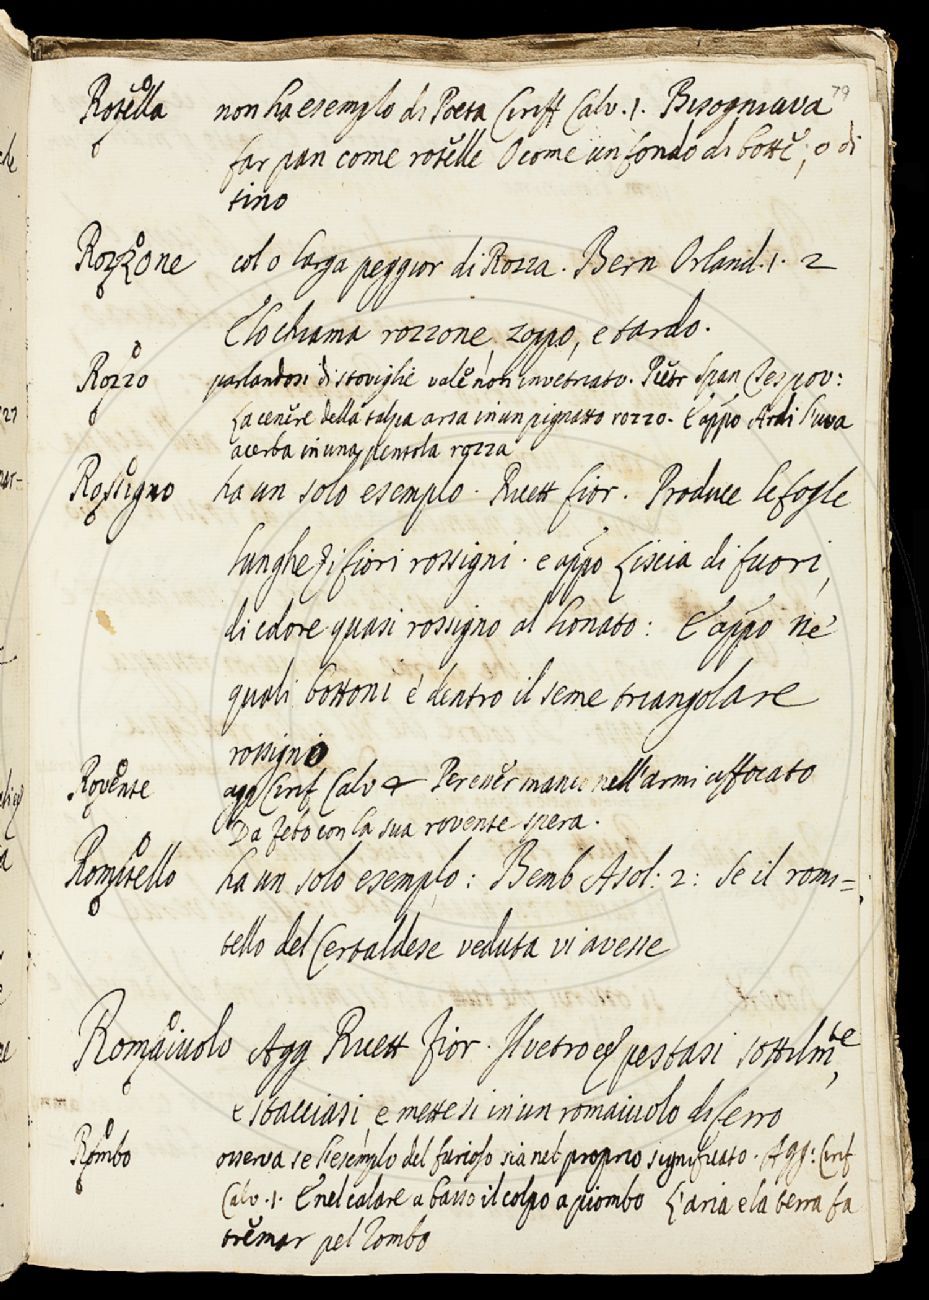 79
Rotella non ha esemplo di Poeta Ciriff Calv. 1. Bisogniava
far pan come rotelle O come un fondo di botte, o di
tino
Rozzone col o larga peggior di Rozza. Bern Orland. 1. 2
E lo chiama rozzone, zoppo, e tardo.
Rozzo parlandosi di stoviglie vale non invetriato. Pietr Span Tes pov:
La cenere della talpa arsa in un pignatto rozzo. E appo Ardi l'uva
acerba in una pentola rozza
Rossigno ha un solo esemplo. Ricett fior. Produce le foglie
lunghe, i fiori rossigni. e appo Liscia di fuori,
di colore quasi rossigno al lionato: E appo ne'
quali bottoni è dentro il seme triangolare
rossigno
Rovente agg Cirif Calv Per ever manco nell'armi affocato
Da febo con la sua rovente spera.
Romitello ha un solo esemplo: Bemb Asol: 2: Se il romi=
tello del Certaldese veduta vi avesse
Romaiuolo Agg Ricett Fior. Il vetro pestasi sottilmte,
e stacciasi e mettesi in un romaiuolo di ferro
Rombo osserva se l'esemplo del furioso sia nel proprio significato. Agg: Cirif
Calv. 1. E nel calare a basso il colpo a piombo L'aria e la terra fa
tremar pel Rombo